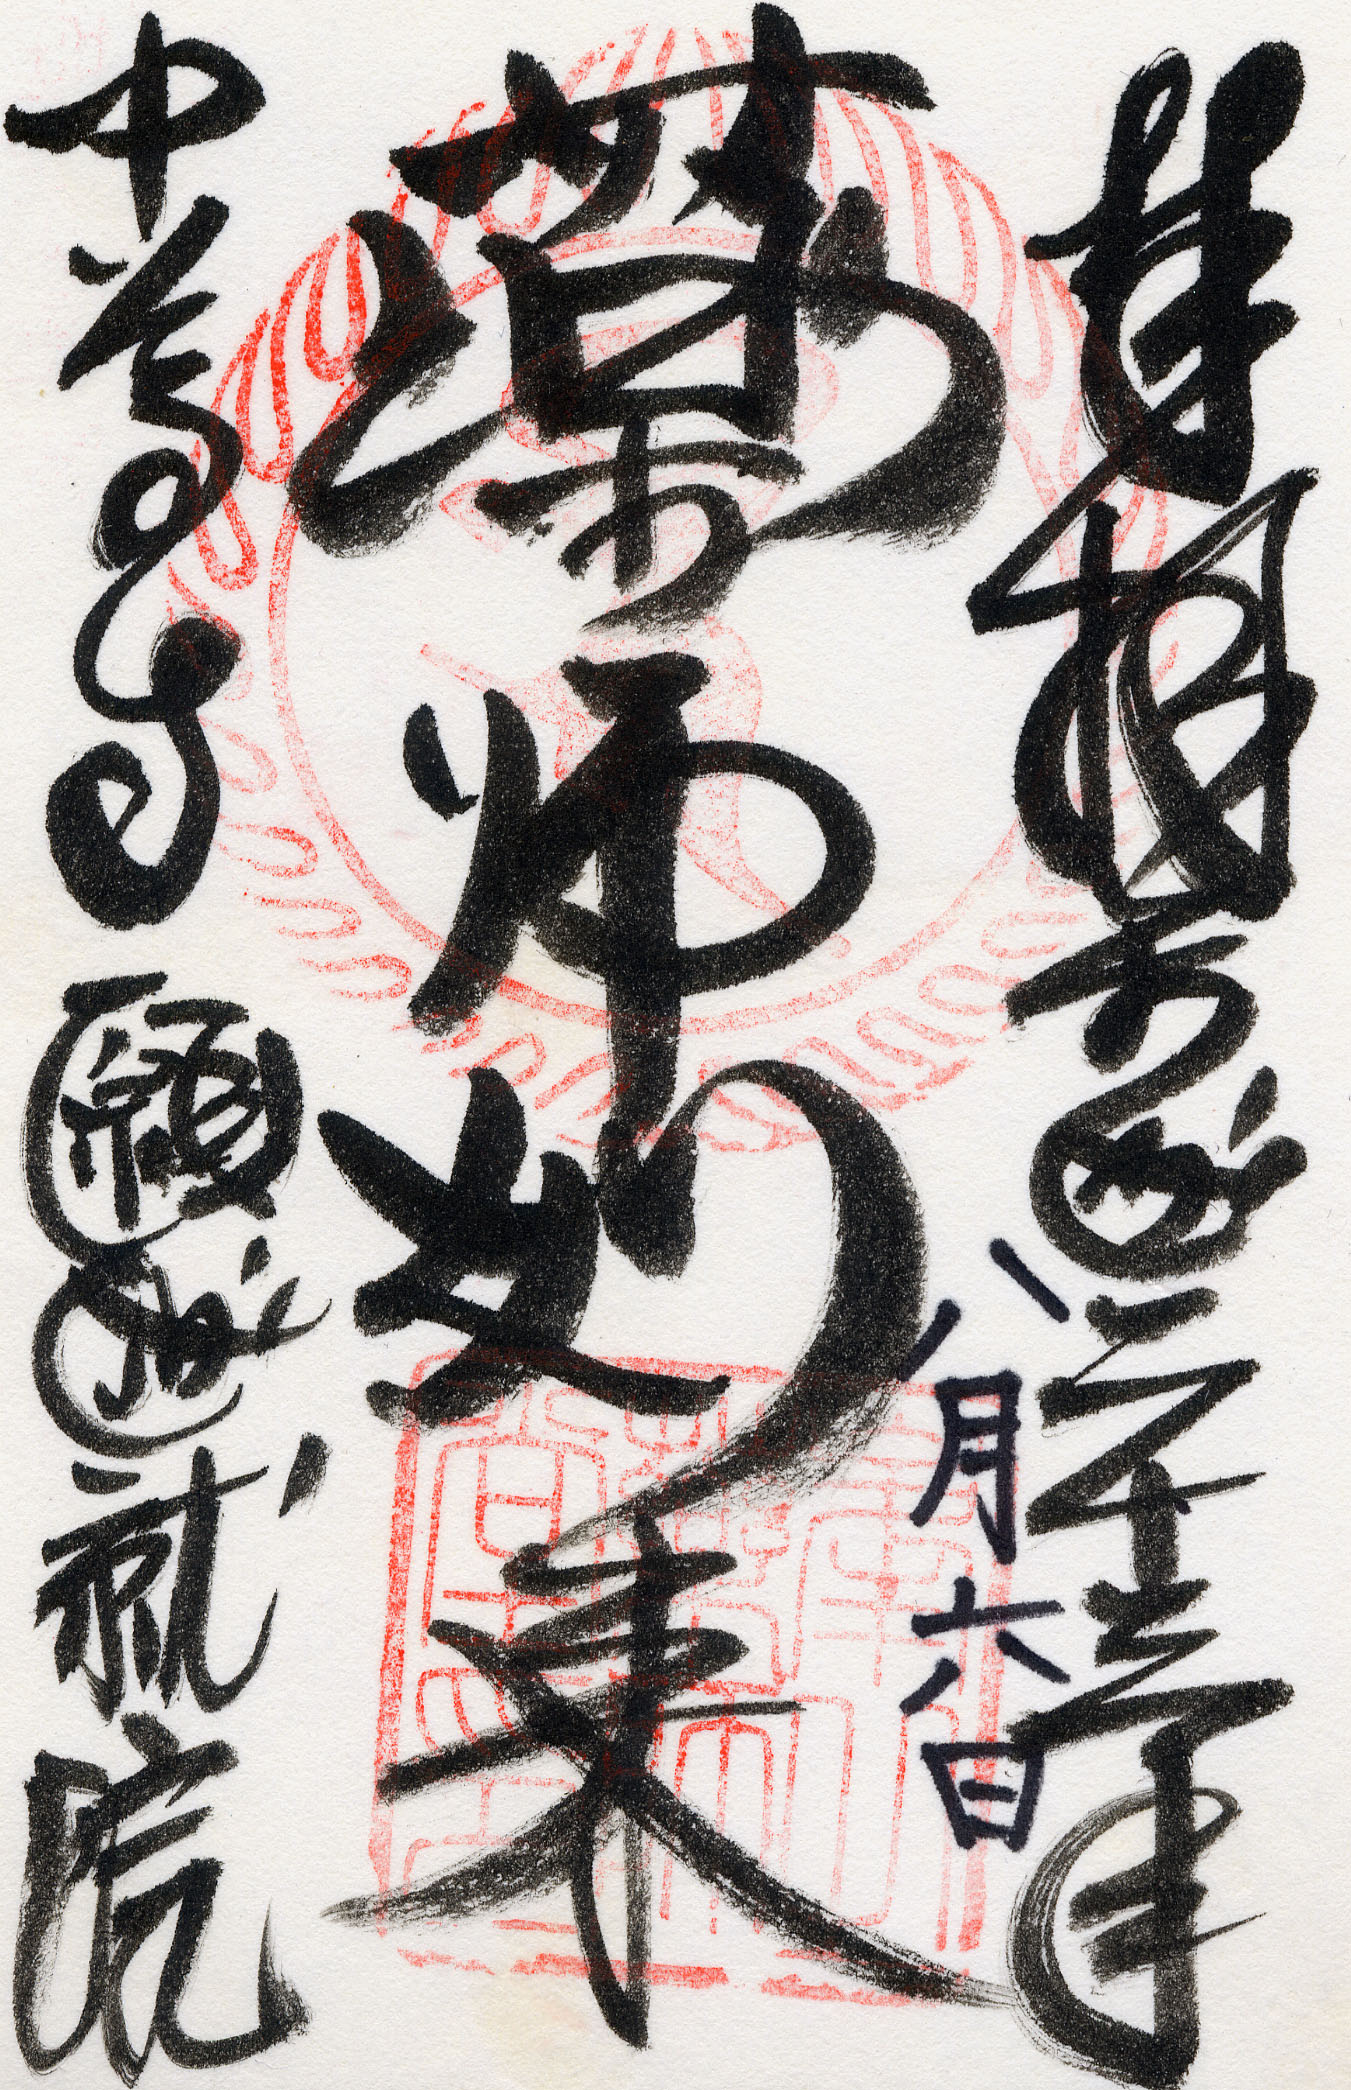 奉拝 平成二十年
八月六日
薬師如来
中尊寺 願成就院